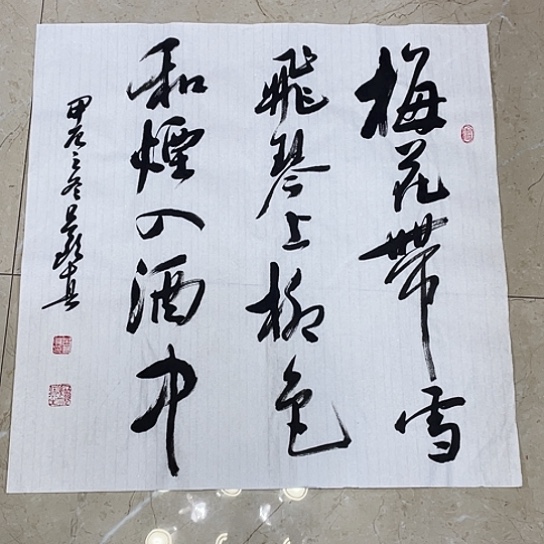 梅花帶雪
飛琴上柳色
和煙入酒中
甲辰之冬